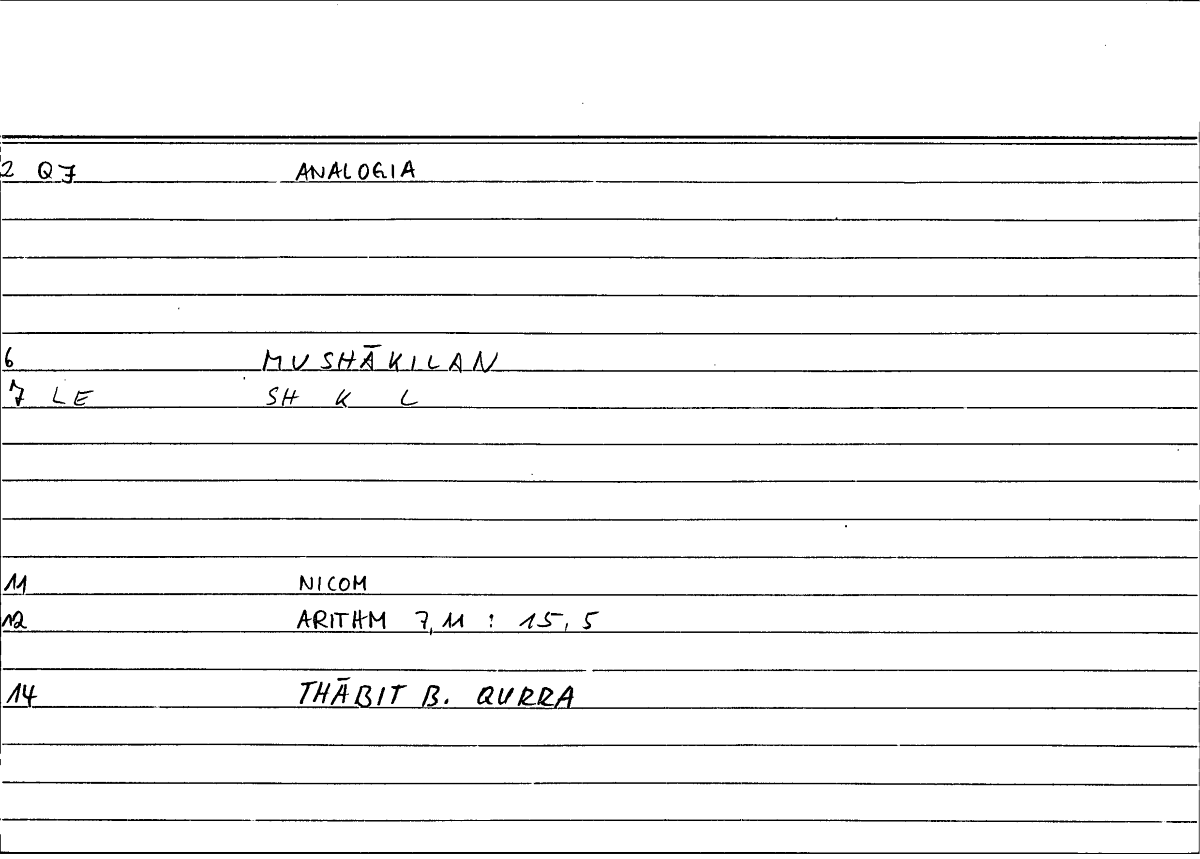 2 Q7 ANALOGIA
6 MUSHĀKILAN
7 LE SH K L
11 NICOM
12 ARITHM 7,11 : 15,5
14 THĀBIT B. QURRA